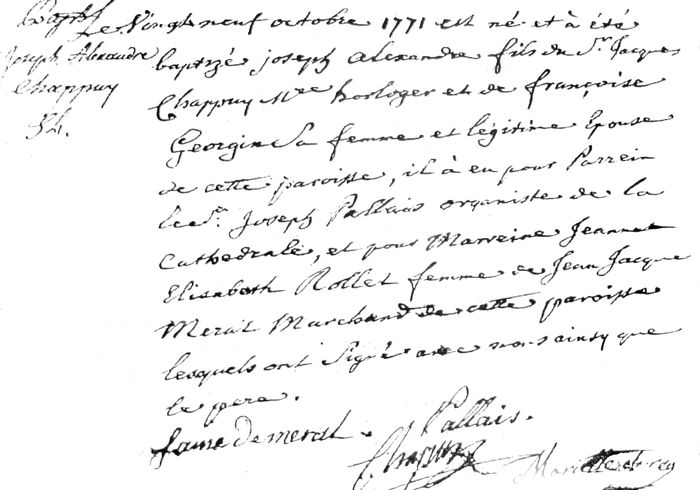 Bapt.
Joseph Alexandre
Chappuy
54.
Le Vingt neuf octobre 1771 est né et à été
baptizé joseph alexandre fils du Sr. Jacques
Chappuy Mre horloger et de françoise
Georgin Sa femme et légitime Epouse
de cette paroisse, il à eu pour Parrein
le Sr. Joseph Pallais organiste de la
Cathedrale, et pour Marreine Jeannet
Elisabeth Rollet femme de Jean Jacque
Merat Marchand de cette paroisse
lesquels ont Signé avec nous ainsy que
le pere.
fame De merat. Pallais.
Chappuy